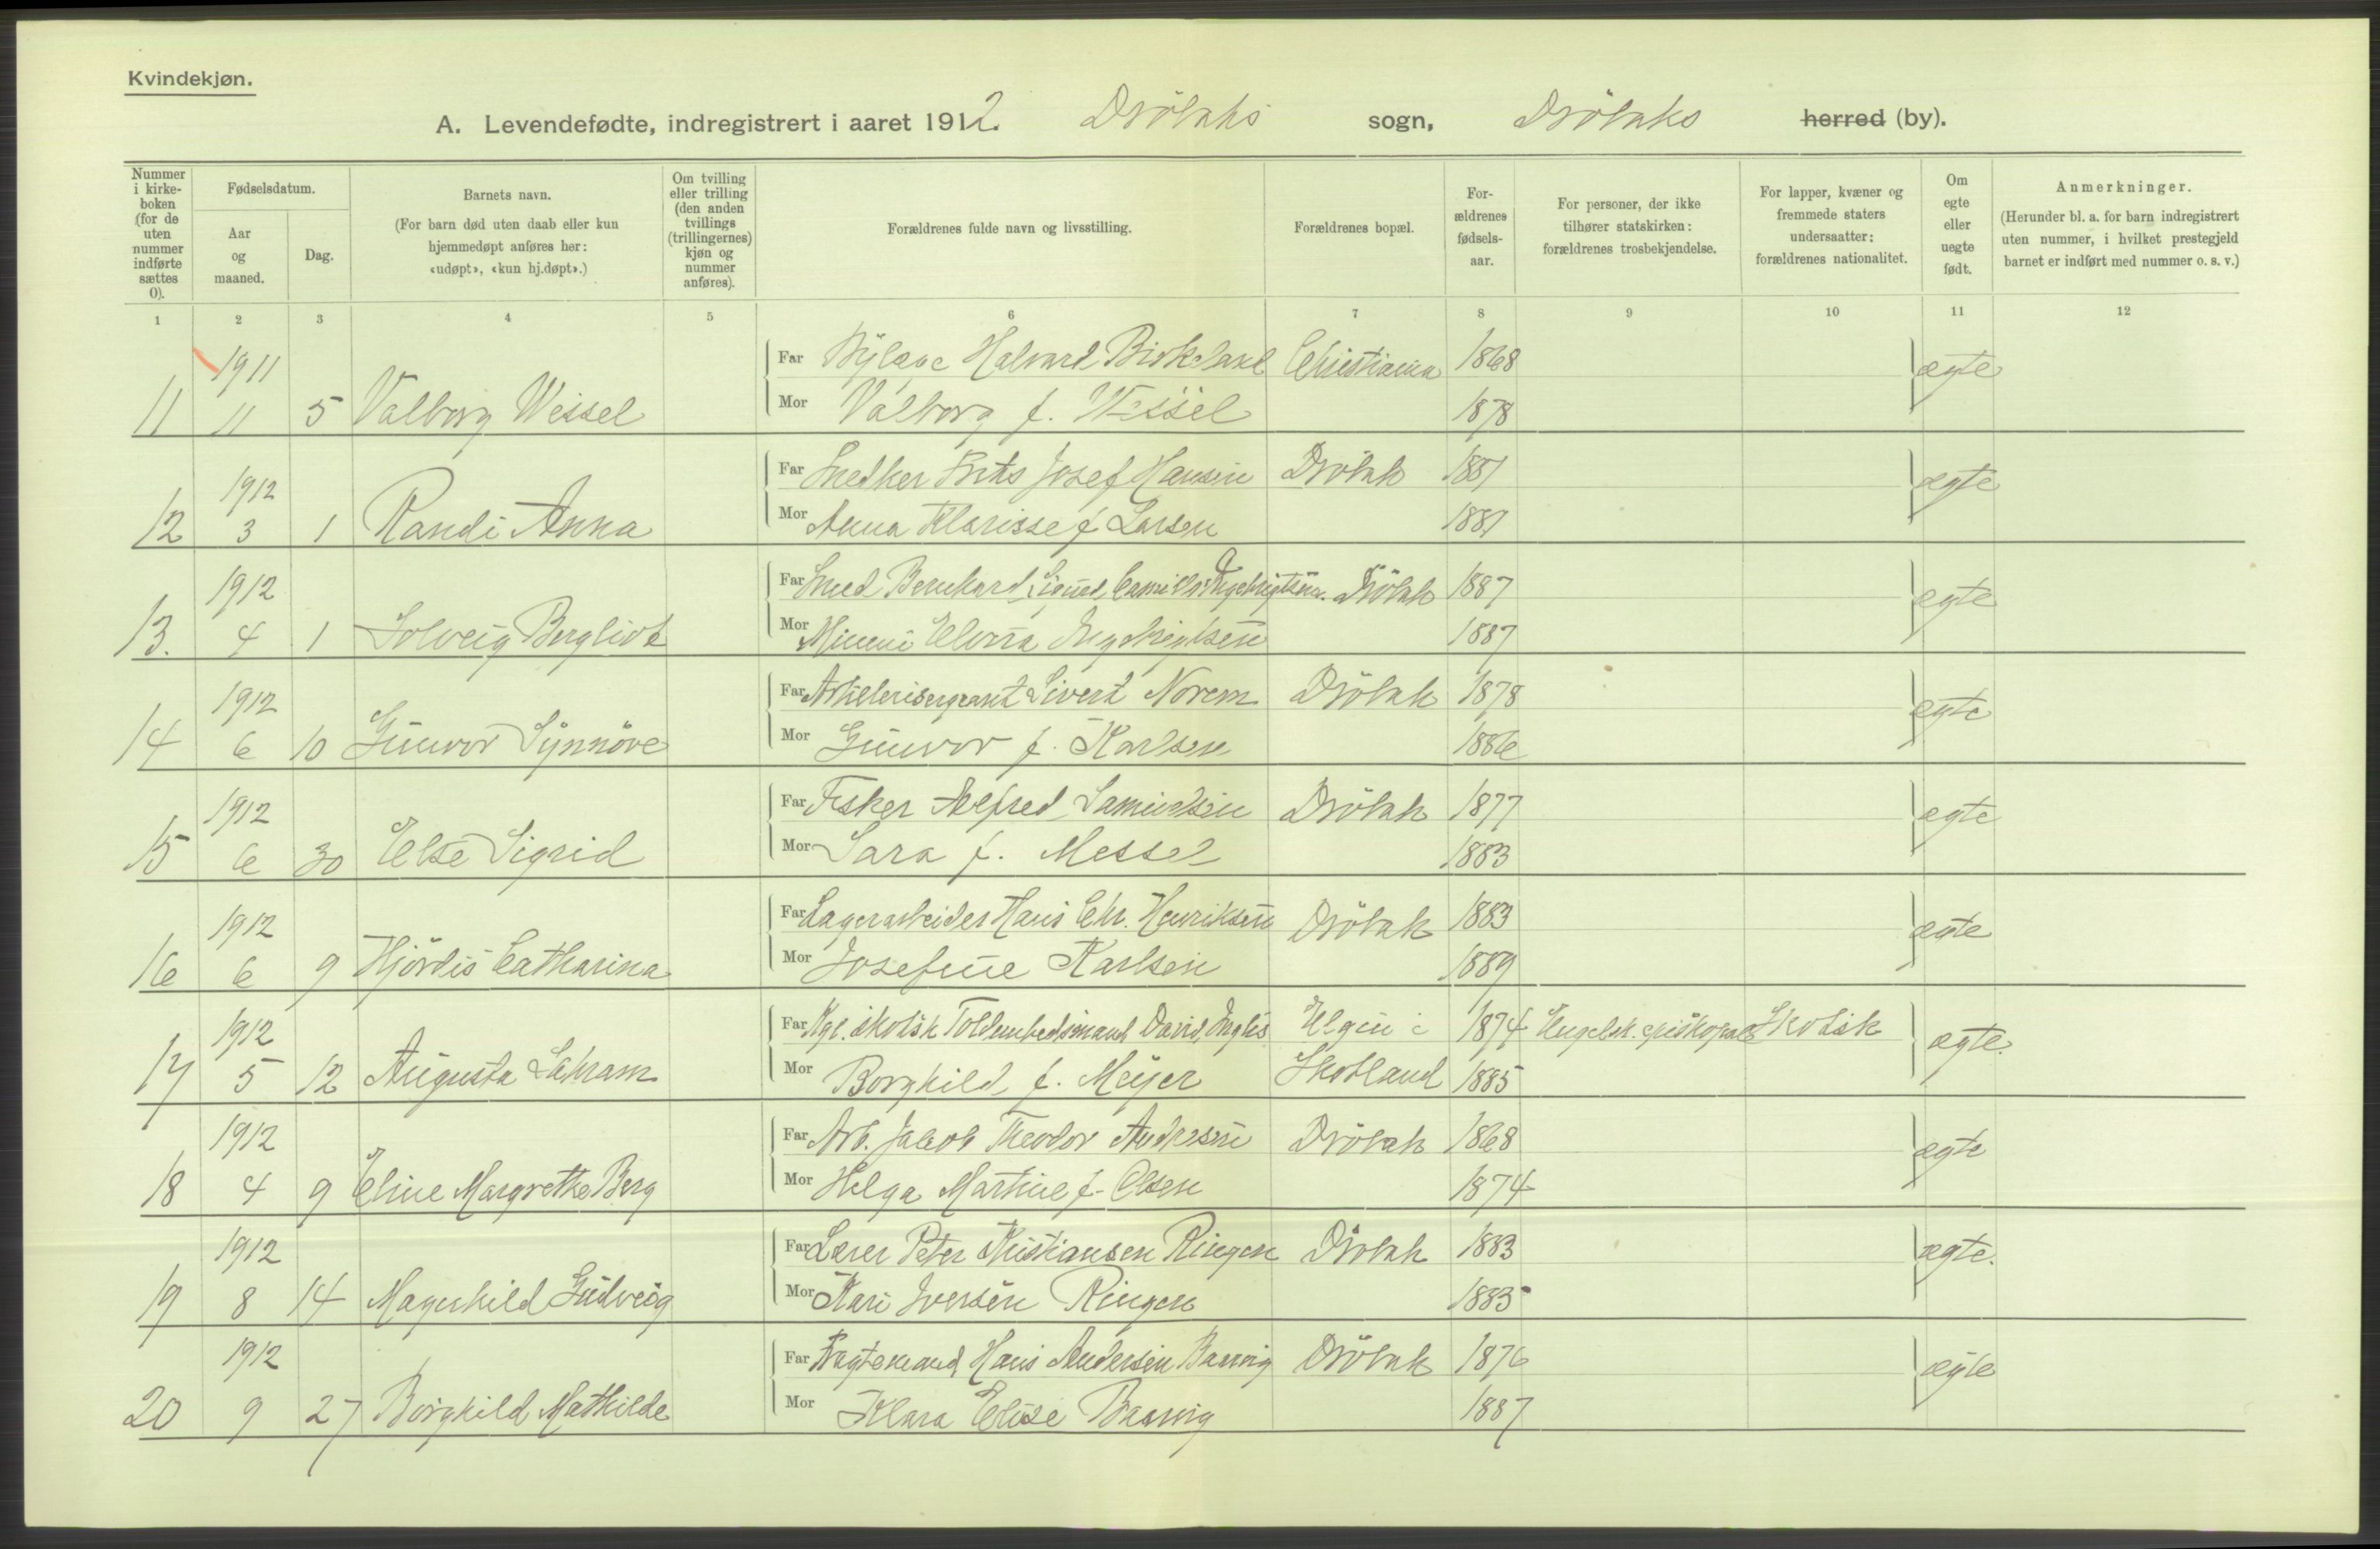 Kvindekjøn.
A. Levendefødte, indregistrert i aaret 1912. Drøbaks sogn, Drøbaks herred (by).
Nummer i kirkeboken (for de uten nummer indførte sættes 0).
Fødselsdatum.
Aar og maaned.
Dag.
Barnets navn.
(For barn død uten daab eller kun hjemmedøpt anføres her: «udøpt», «kun hj.døpt».)
Om tvilling eller trilling (den anden tvillings (trillingernes) kjøn og nummer anføres).
Forældrenes fulde navn og livsstilling.
Forældrenes bopæl.
Forældrenes fødselsaar.
For personer, der ikke tilhører statskirken: forældrenes trosbekjendelse.
For lapper, kvæner og fremmede staters undersaatter: forældrenes nationalitet.
Om egte eller uegte født.
Anmerkninger.
(Herunder bl. a. for barn indregistrert uten nummer, i hvilket prestegjeld barnet er indført med nummer o. s. v.)
1 2 3 4 5 6 7 8 9 10 11 12
1911 Far Halvard Birkeland Christiania 1868 ægte
11 11 5 Valborg Wessel Mor Valborg f. Wessel 1878
1912 Far Snedker Frits Josef Hansen Drøbak 1881 ægte
12 3 1 Randi Anna Mor Anna Klarisse f Larsen 1881
1912 Far Smed Bernhard Sigurd Camillo Ingebrigtsen. Drøbak 1887 egte
13. 4 1 Solveig Bergliot Mor Minni Elvira Ingebrigtsen 1887
1912 Far Artillerisergeant Sivert Norem Drøbak 1878 egte
14 6 10 Gunvor Synnöve Mor Gunvor f. Karlsen 1886
1912 Far Fisker Alfred Samuelsen Drøbak 1877 egte
15 6 30 Else Sigrid Mor Sara f. Messel 1883
1912 Far Lagerarbeider Hans Chr. Henriksen Drøbak 1883 egte
16 6 9 Hjördis Catharina Mor Josefine Karlsen 1889
1912 Far Kgl. skotsk Toldembedsmand David Inglis Elgin i 1874 Engelsk. episkopale Skotsk ægte.
17 5 12 Augusta Mor Borghild f. Meyer Skotland 1885
1912 Far Arb. Jakob Theodor Andersen Drøbak 1868 ægte
18 4 9 Eline Margrethe Berg Mor Helga Martine f. Olsen 1874
1912 Far Lærer Peter Kristiansen Ringen Drøbak 1883 ægte.
19 8 14 Magnhild Gudveig Mor Kari Iversen Ringen 1885
1912 Far Fragtemand Hans Andersen Baarvig Drøbak 1876 ægte
20 9 27 Borghild Mathilde Mor Klara Elise Baarvig 1887